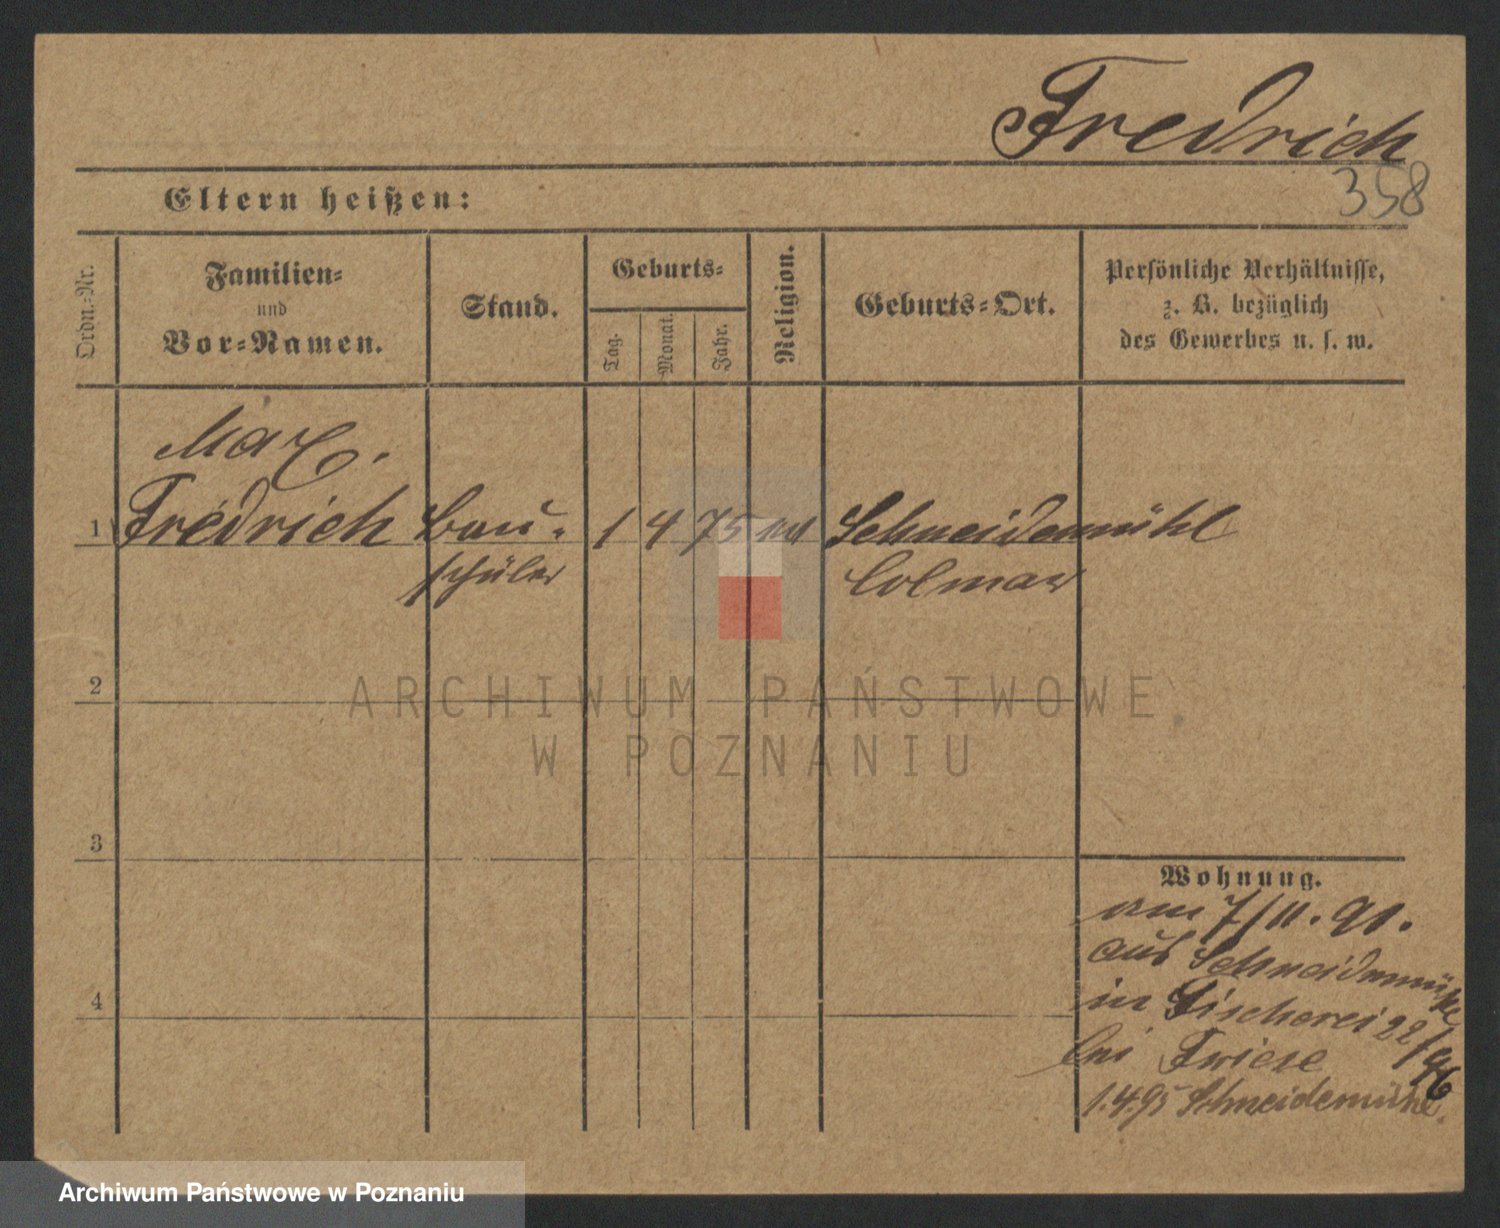 Fredrich
358
Eltern heißen:
Ordn.-Nr.
Familien-
und
Vor-Namen.
Stand.
Geburts-
Tag.
Monat.
Jahr.
Religion.
Geburts-Ort.
Persönliche Verhältnisse,
z. B. bezüglich
des Gewerbes u. s. w.
Max.
1 Fredrich Bau- 1 4 75 Schneidemühl
schüler Colmar
2
3
4
Wohnung.
am 7/11. 91.
aus Schneidemühl
in Fischerei 22/
bei Friese 96
1.4.95 Schneidemühl.
ARCHIWUM PAŃSTWOWE
W POZNANIU
Archiwum Państwowe w Poznaniu